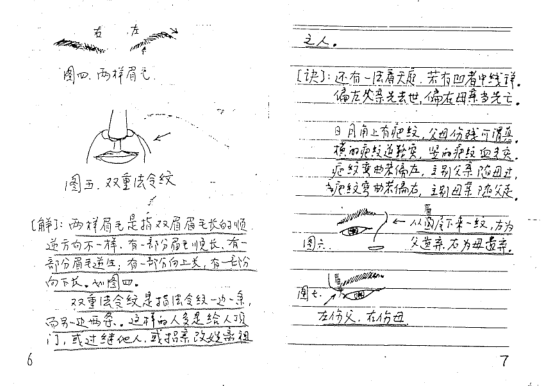 右 左
图四.两样眉毛
图五.双重法令纹
[解]:两样眉毛是指双眉眉毛长的顺
逆方向不一样.有一部分眉毛顺长,有一
部分眉毛逆生;有一部分向上长,有一部份
向下长.如图四.
双重法令纹是指法令纹一边一条,
而另一边两条.这样的人多是给人顶
门,或过继他人.或招亲改姓亲祖
6
之人.
[诀]:还有一法看天庭.若有凹者中线详.
偏左父亲先去世,偏在母亲当先亡.
日月角上有疤纹,父母伤残可谓真
横的疤纹
疤纹弯曲若偏左,主别父亲随母过
疤纹弯曲若偏右,主别母亲随父走
从眉尾下来一纹,左为
父遭辜.右为母遭辜.
图六.
图七.
左伤父.右伤母
7